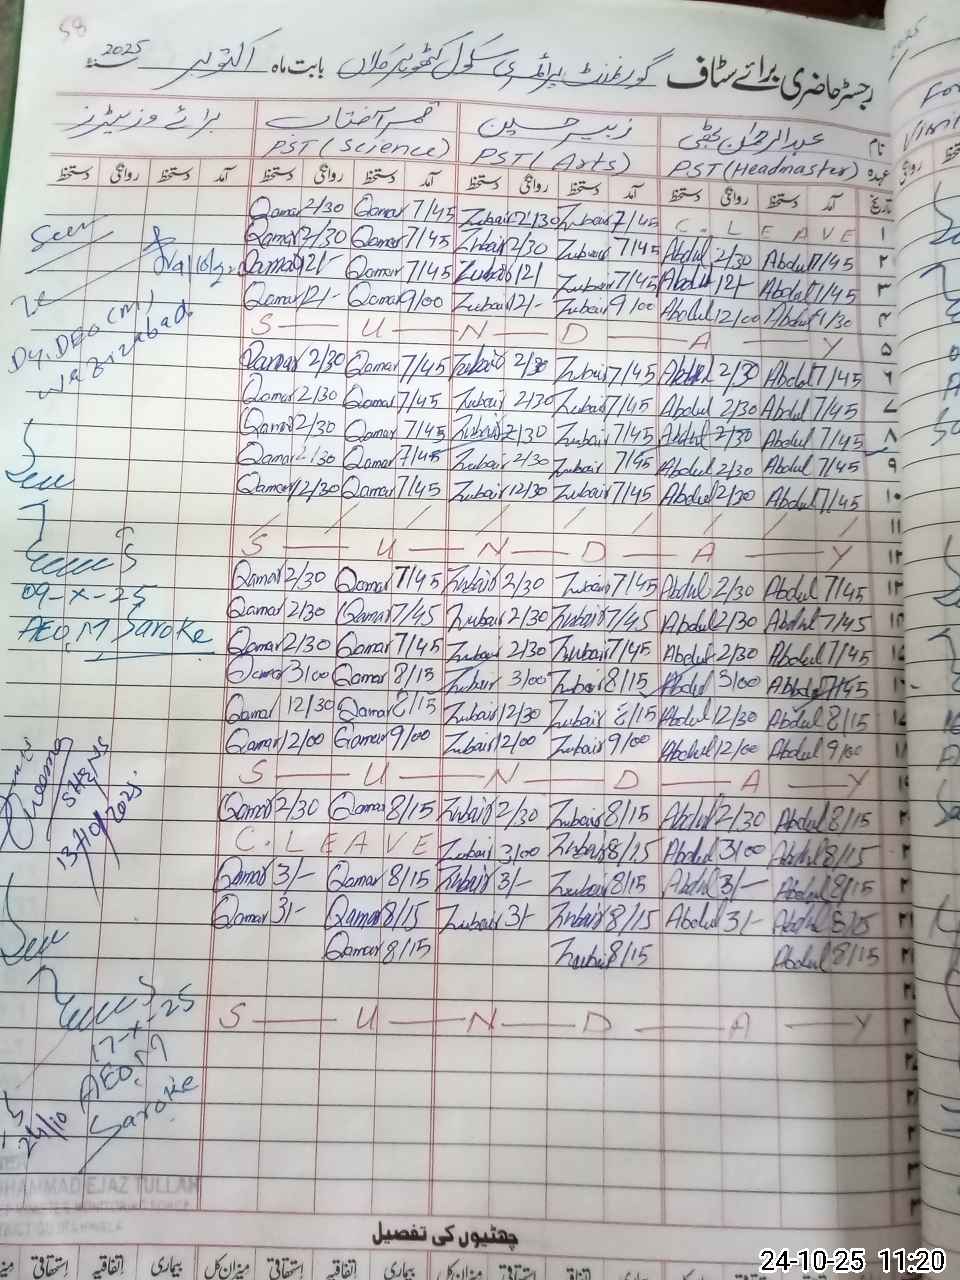 58
رجسٹر حاضری برائے سٹاف گورنمنٹ پرائمری سکول بابت ماہ اکتوبر 2025
نام عبدالرحمان زبیر حسین قمر آفتاب برائے وزیٹرز
عہدہ PST (Headmaster) PST (Arts) PST (Science)
تاریخ آمد دستخط روانگی دستخط آمد دستخط روانگی دستخط آمد دستخط روانگی دستخط آمد دستخط روانگی دستخط
Qamar 2/30 Qamar 7/45 Zubair 2/30 Zubair 7/45 C. L E A V E ۱
Qamar 2/30 Qamar 7/45 Zubair 2/30 Zubair 7/45 Abdul 2/30 Abdul 7/45 ۲
Qamar 12/- Qamar 7/45 Zubair 12/ Zubair 7/45 Abdul 12/- Abdul 7/45 ۳
Qamar 12/- Qamar 9/00 Zubair 12/- Zubair 9/00 Abdul 12/00 Abdul ۴
S U N D A Y ۵
Qamar 2/30 Qamar 7/45 Zubair 2/30 Zubair 7/45 Abdul 2/30 Abdul 7/45 ۶
Qamar 2/30 Qamar 7/45 Zubair 2/30 Zubair 7/45 Abdul 2/30 Abdul 7/45 ۷
Qamar 2/30 Qamar 7/45 Zubair 2/30 Zubair 7/45 Abdul 2/30 Abdul 7/45 ۸
Qamar 2/30 Qamar 7/45 Zubair 2/30 Zubair 7/45 Abdul 2/30 Abdul 7/45 ۹
Qamar 12/30 Qamar 7/45 Zubair 12/30 Zubair 7/45 Abdul 2/30 Abdul 7/45 ۱۰
/ / / / / / / / ۱۱
S U N D A Y ۱۲
Qamar 2/30 Qamar 7/45 Zubair 2/30 Zubair 7/45 Abdul 2/30 Abdul 7/45 ۱۳
Qamar 2/30 Qamar 7/45 Zubair 2/30 Zubair 7/45 Abdul 2/30 Abdul 7/45
Qamar 2/30 Qamar 7/45 Zubair 2/30 Zubair 7/45 Abdul 2/30 Abdul 7/45
Qamar 3/00 Qamar 8/15 Zubair 3/00 Zubair 8/15 Abdul 3/00 Abdul 7/45
Qamar 12/30 Qamar 8/15 Zubair 12/30 Zubair 8/15 Abdul 12/30 Abdul 8/15
Qamar 12/00 Qamar 9/00 Zubair 12/00 Zubair 9/00 Abdul 12/00 Abdul 9/00
S U N D A Y
Qamar 2/30 Qamar 8/15 Zubair 2/30 Zubair 8/15 Abdul 2/30 Abdul 8/15
C. L E A V E Zubair 3/00 Zubair 8/15 Abdul 3/00 Abdul 8/15
Qamar 3/- Qamar 8/15 Zubair 3/- Zubair 8/15 Abdul 3/- Abdul 8/15
Qamar 3/- Qamar 8/15 Zubair 3/- Zubair 8/15 Abdul 3/- Abdul 8/15
Qamar 8/15 Zubair 8/15 Abdul 8/15
S U N D A Y
Seen
Dy. DEO (M)
Wazirabad
Seen
09-X-25
AEO, M Saroke
13/10/2025
Seen
17-X-25
AEO, M
Saroke
24/10
MUHAMMAD EJAZ TULLAH
چھٹیوں کی تفصیل
میزان کل استحقاقی اتفاقیہ بیماری میزان کل استحقاقی اتفاقیہ بیماری میزان کل استحقاقی اتفاقیہ بیماری
24-10-25 11:20